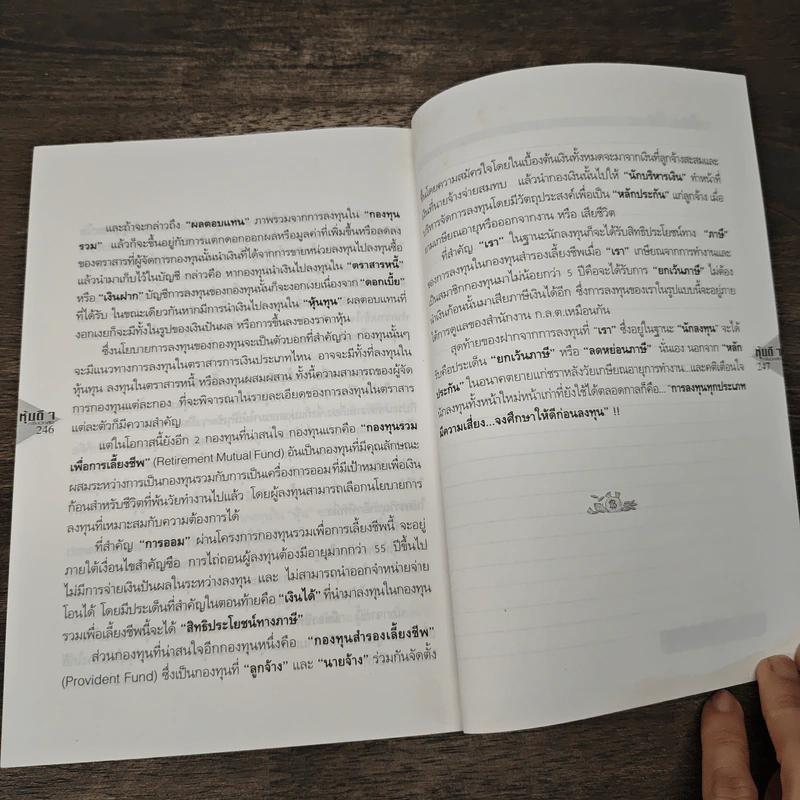 และถ้าจะกล่าวถึง “ผลตอบแทน” ภาพรวมจากการลงทุนใน “กองทุน
รวม” แล้วก็จะขึ้นอยู่กับการแตกดอกออกผลหรือมูลค่าที่เพิ่มขึ้นหรือลดลง
ของตราสารที่ผู้จัดการกองทุนนำเงินที่ได้จากการขายหน่วยลงทุนไปลงทุนซื้อ
แล้วนำมาเก็บไว้ในบัญชี กล่าวคือ หากกองทุนนำเงินไปลงทุนใน “ตราสารหนี้”
หรือ “เงินฝาก” บัญชีการลงทุนของกองทุนนั้นก็จะงอกเงยเนื่องจาก “ดอกเบี้ย”
ที่ได้รับ ในขณะเดียวกันหากมีการนำเงินไปลงทุนใน “หุ้นทุน” ผลตอบแทนที่
งอกเงยก็จะมีทั้งในรูปของเงินปันผล หรือการขึ้นลงของราคาหุ้น
ซึ่งนโยบายการลงทุนของกองทุนจะเป็นตัวบอกที่สำคัญว่า กองทุนนั้นๆ
จะมีแนวทางการลงทุนในตราสารการเงินประเภทไหน อาจจะมีทั้งที่ลงทุนใน
หุ้นทุน ลงทุนในตราสารหนี้ หรือลงทุนผสมผสาน ทั้งนี้ความสามารถของผู้จัด
การกองทุนแต่ละกอง ที่จะพิจารณาในรายละเอียดของการลงทุนในตราสาร
แต่ละตัวก็มีความสำคัญ
หุ้นดี จ
246
แต่ในโอกาสนี้ยังอีก 2 กองทุนที่น่าสนใจ กองทุนแรกคือ “กองทุนรวม
เพื่อการเลี้ยงชีพ” (Retirement Mutual Fund) อันเป็นกองทุนที่มีคุณลักษณะ
ผสมระหว่างการเป็นกองทุนรวมกับการเป็นเครื่องการออมที่มีเป้าหมายเพื่อเงิน
ก้อนสำหรับชีวิตที่พ้นวัยทำงานไปแล้ว โดยผู้ลงทุนสามารถเลือกนโยบายการ
ลงทุนที่เหมาะสมกับความต้องการได้
ที่สำคัญ “การออม” ผ่านโครงการกองทุนรวมเพื่อการเลี้ยงชีพนี้ จะอยู่
ภายใต้เงื่อนไขสำคัญซือ การไถ่ถอนผู้ลงทุนต้องมีอายุมากกว่า 55 ปีขึ้นไป
ไม่มีการจ่ายเงินปันผลในระหว่างลงทุน และ ไม่สามารถนำออกจำหน่ายจ่าย
โอนได้ โดยมีประเด็นที่สำคัญในตอนท้ายคือ “เงินได้” ที่นำมาลงทุนในกองทุน
รวมเพื่อเลี้ยงชีพนี้จะได้ “สิทธิประโยชน์ทางภาษี”
ส่วนกองทุนที่น่าสนใจอีกกองทุนหนึ่งคือ “กองทุนสำรองเลี้ยงชีพ”
(Provident Fund) ซึ่งเป็นกองทุนที่ “ลูกจ้าง” และ “นายจ้าง” ร่วมกันจัดตั้ง
ขึ้นโดยความสมัครใจโดยในเบื้องต้นเงินทั้งหมดจะมาจากเงินที่ลูกจ้างสะสมและ
เงินที่นายจ้างจ่ายสมทบ แล้วนำกองเงินนั้นไปให้ “นักบริหารเงิน” ทำหน้าที่
บริหารจัดการลงทุนโดยมีวัตถุประสงค์เพื่อเป็น “หลักประกัน” แก่ลูกจ้าง เมื่อ
ยามเกษียณอายุหรือออกจากงาน หรือ เสียชีวิต
ที่สำคัญ “เรา” ในฐานะนักลงทุนก็จะได้รับสิทธิประโยชน์ทาง “ภาษี”
ของการลงทุนในกองทุนสำรองเลี้ยงชีพเมื่อ “เรา” เกษียณจากการทำงานและ
เป็นสมาชิกกองทุนมาไม่น้อยกว่า 5 ปีคือจะได้รับการ “ยกเว้นภาษี” ไม่ต้อง
นำเงินก้อนนั้นมาเสียภาษีเงินได้อีก ซึ่งการลงทุนของเราในรูปแบบนี้จะอยู่ภาย
ใต้การดูแลของสำนักงาน ก.ล.ต.เหมือนกัน
สุดท้ายของฝากจากการลงทุนที่ “เรา” ซึ่งอยู่ในฐานะ “นักลงทุน” จะได้
รับคือประเด็น “ยกเว้นภาษี” หรือ “ลดหย่อนภาษี” นั่นเอง นอกจาก “หลัก
ประกัน” ในอนาคตยายแก่ชราหลังวัยเกษียณอายุการทำงาน...และคติเตือนใจ
นักลงทุนทั้งหน้าใหม่หน้าเก่าที่ยังใช้ได้ตลอดกาลก็คือ... “การลงทุนทุกประเภท
มีความเสี่ยง...จงศึกษาให้ดีก่อนลงทุน” !!
หุ้นดี จ
247